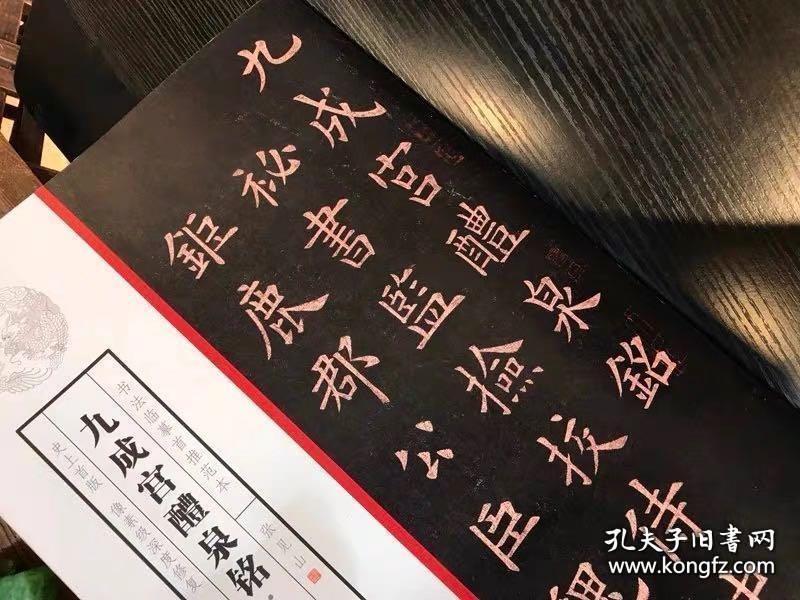 九成宮醴泉銘
祕書監撿挍侍
鉅鹿郡公臣魏
书法临摹首推范本
九成宫醴泉铭
史上首版 像素级深度修复
张见山
孔夫子旧书网
www.kongfz.com